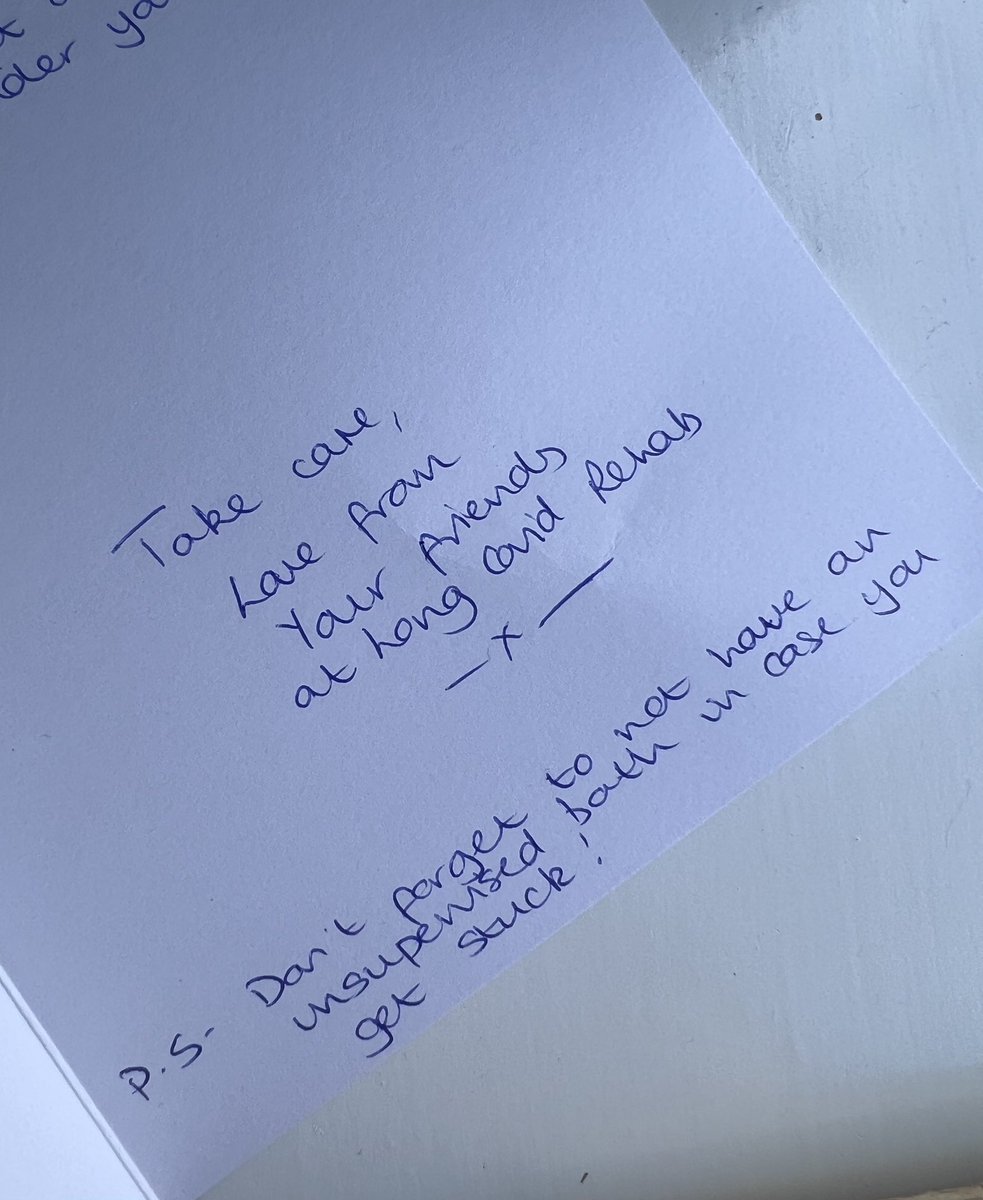 der ya
Take care,
Love from
Your friends
at Long Covid Rehab
— x —
P.S- Don't forget to not have an
unsupervised bath in case you
get stuck!